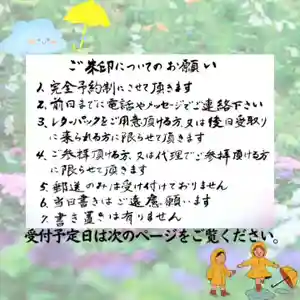 ご朱印についてのお願い
1. 完全予約制にさせて頂きます
2. 前日までに電話やメッセージでご連絡下さい
3. レターパックをご用意頂ける方又は後日受取り
に来られる方に限らせて頂きます
4. ご参拝頂ける方又は代理でご参拝頂ける方
に限らせて頂きます
5. 郵送のみは受け付けておりません
6. 当日書きはご遠慮願います
7. 書き置きは有りません
受付予定日は次のページをご覧ください。